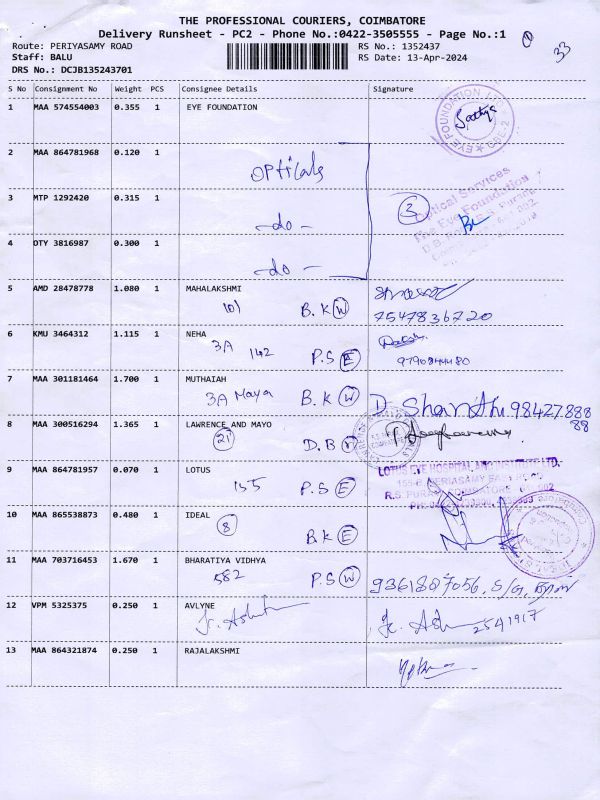 THE PROFESSIONAL COURIERS, COIMBATORE
Delivery Runsheet - PC2 - Phone No.:0422-3505555 - Page No.:1
Route: PERIYASAMY ROAD
RS No.: 1352437
Staff: BALU
RS Date: 13-Apr-2024
DRS No.: DCJB135243701
1
33
S No Consignment No Weight PCS Consignee Details Signature
1 MAA 574554003 0.355 1 EYE FOUNDATION
EYE FOUNDATION
CBE-2
Sathya
2 MAA 864781968 0.120 1
Opticals
Optical Services
The Eye Foundation
3 MTP 1292420 0.315 1
-do-
3
4 OTY 3816987 0.300 1
-do-
5 AMD 28478778 1.080 1 MAHALAKSHMI
101 B.K W
7547836720
6 KMU 3464312 1.115 1 NEHA
3A 142 P.S E
9790844480
7 MAA 301181464 1.700 1 MUTHAIAH
3A Maya B.K W
D Sharathi 98427888
88
8 MAA 300516294 1.365 1 LAWRENCE AND MAYO
21 D.B
9 MAA 864781957 0.070 1 LOTUS
LOTUS EYE HOSPITAL AND INSTITUTE LTD.
155 P.S E
10 MAA 865538873 0.480 1 IDEAL
8 B.K E
11 MAA 703716453 1.670 1 BHARATIYA VIDHYA
582 P.S W
9361887056, S/G,
12 VPM 5325375 0.250 1 AVLYNE
2541917
13 MAA 864321874 0.250 1 RAJALAKSHMI